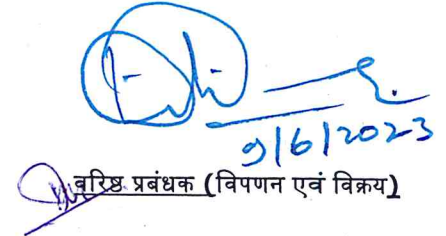 9/6/2023
वरिष्ठ प्रबंधक (विपणन एवं विक्रय)